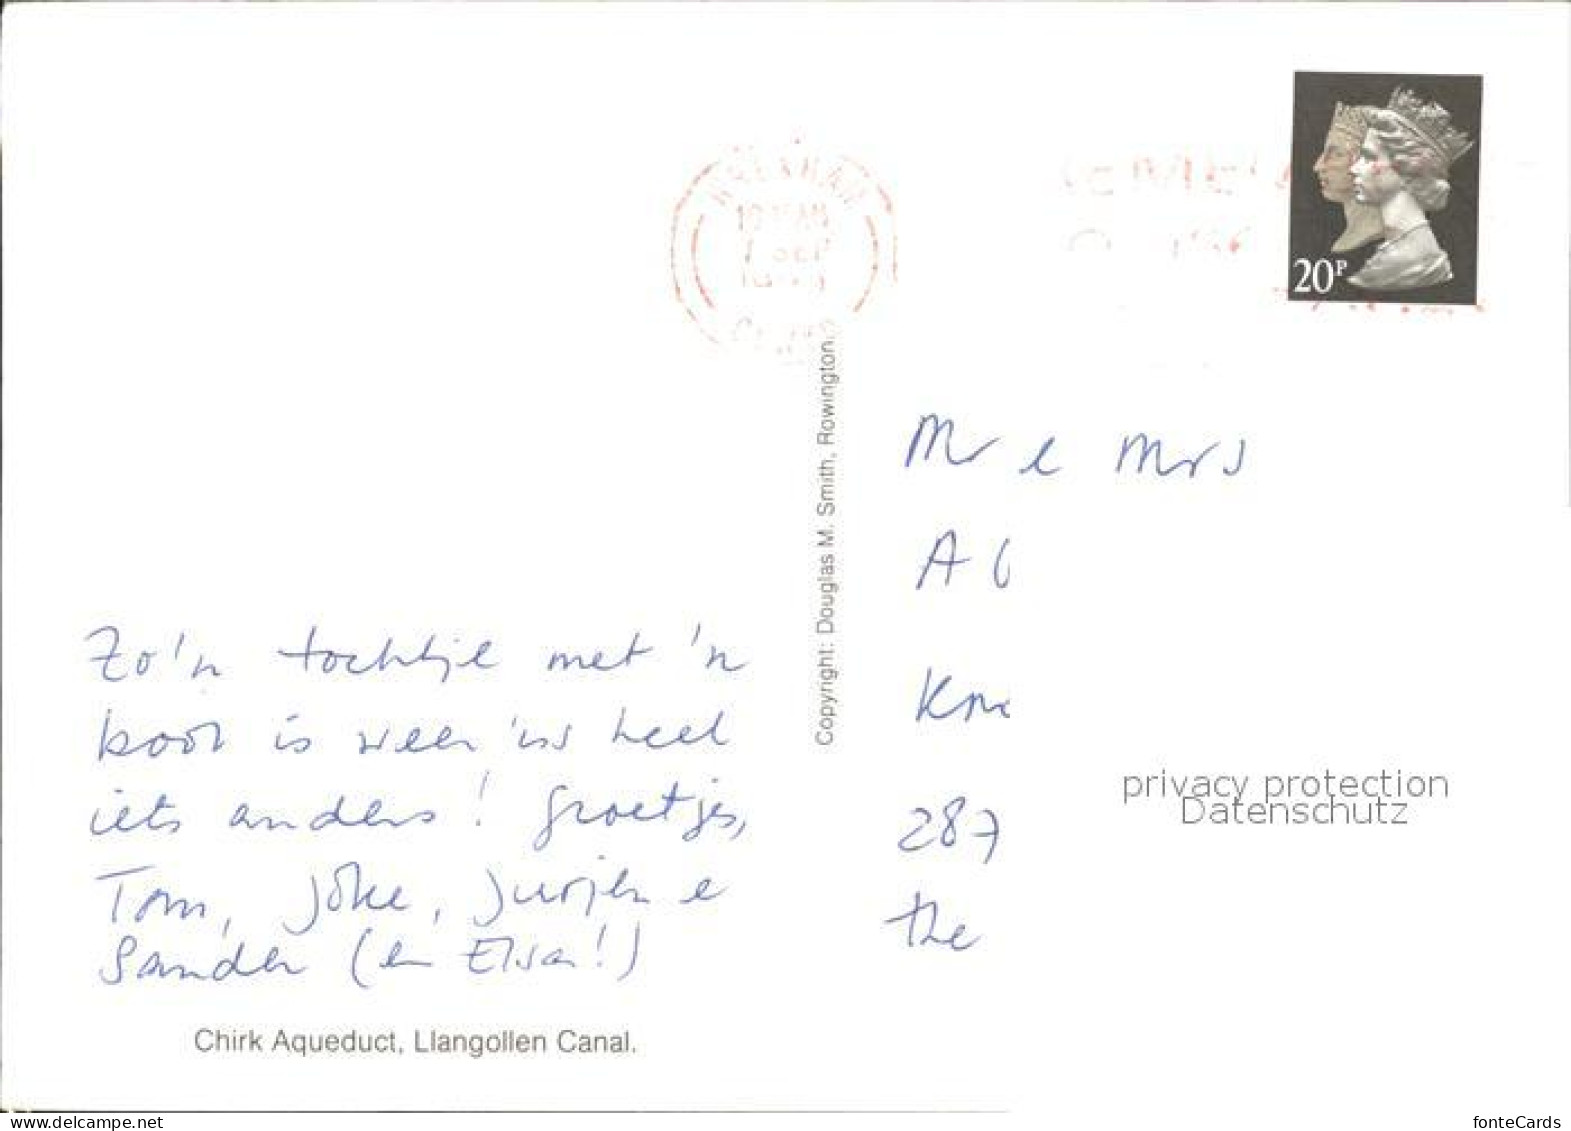 WREXHAM
SEP
20P
Copyright: Douglas M. Smith, Rowington.
Mr e Mrs
A
287
the
privacy protection
Datenschutz
Zo'n tochtje met 'n
boot is weer 'ns heel
iets anders! Groetjes,
Tom, Joke, Jurjen e
Sander (en Elsa!)
Chirk Aqueduct, Llangollen Canal.
www.delcampe.net
fonteCards